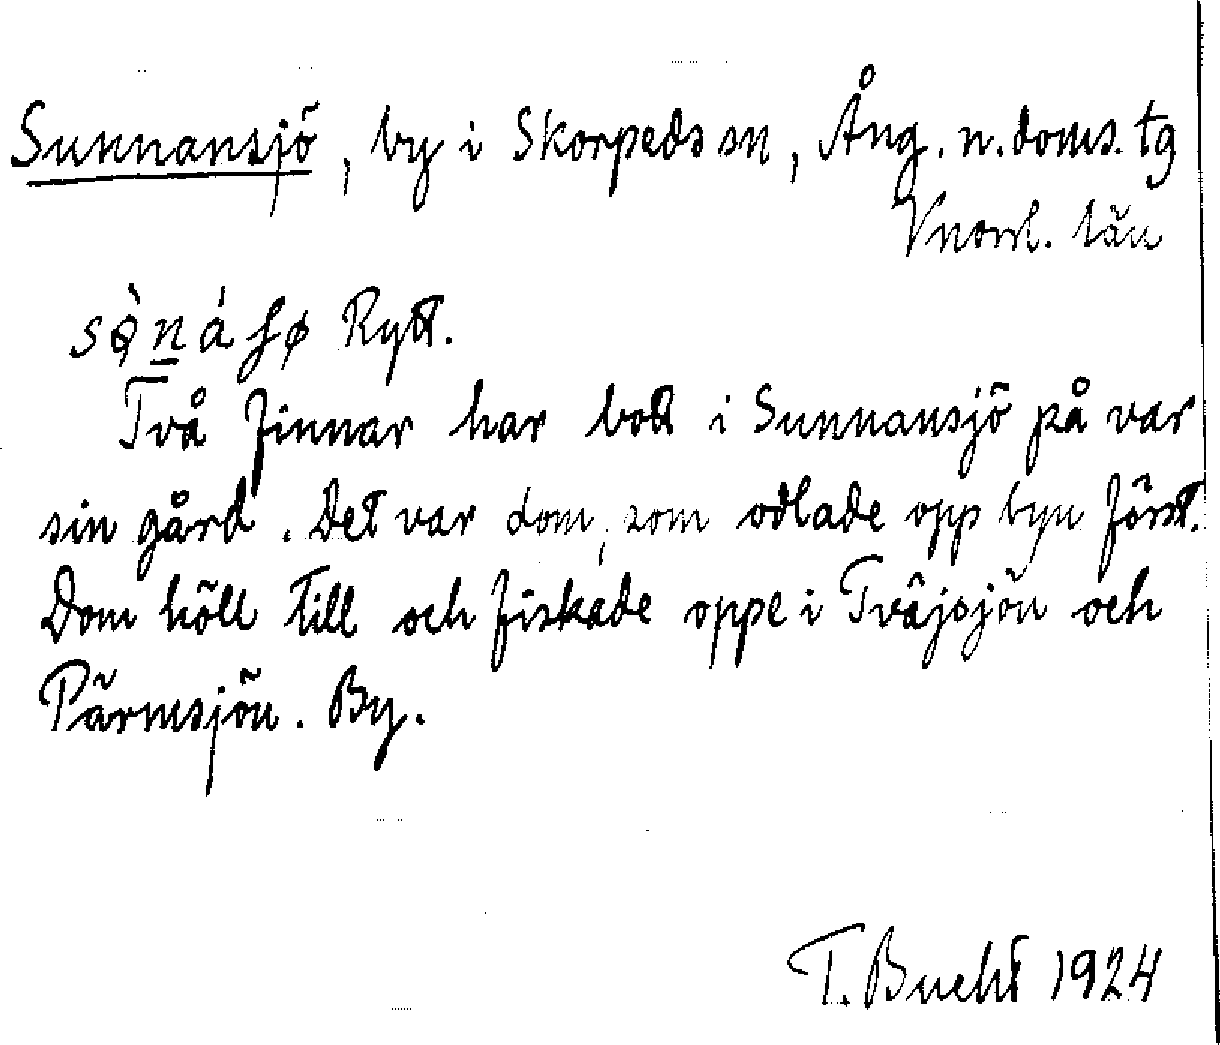 Sunnansjö, by i Skorpeds sn, Ång. n. doms. tg
Vnorrl. län
sǫ̀ná ʃø Rytt.
Två finnar har bott i Sunnansjö på var
sin gård. Det var dom, som odlade opp byn först.
Dom höll till och fiskade oppe i Tväjsjön och
Pärmsjön. By.
T. Bucht 1924